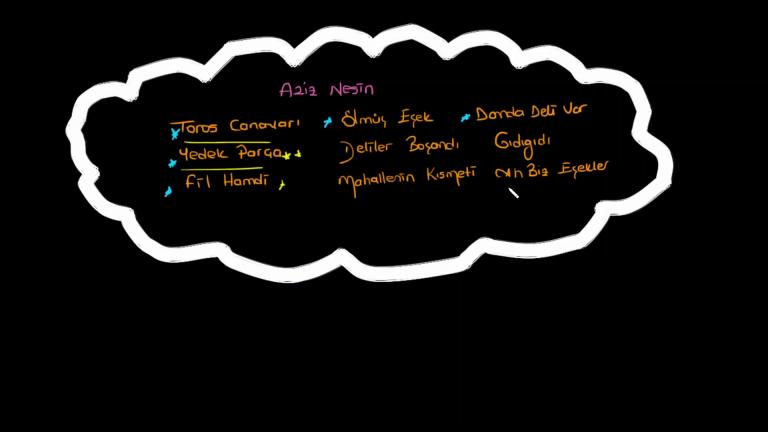 Aziz Nesin
Toros Canavarı
Yedek Parça
Fil Hamdi
Ölmüş Eşek
Deliler Boşandı
Mahallenin Kısmeti
Damda Deli Var
Gıdıgıdı
Ah Biz Eşekler